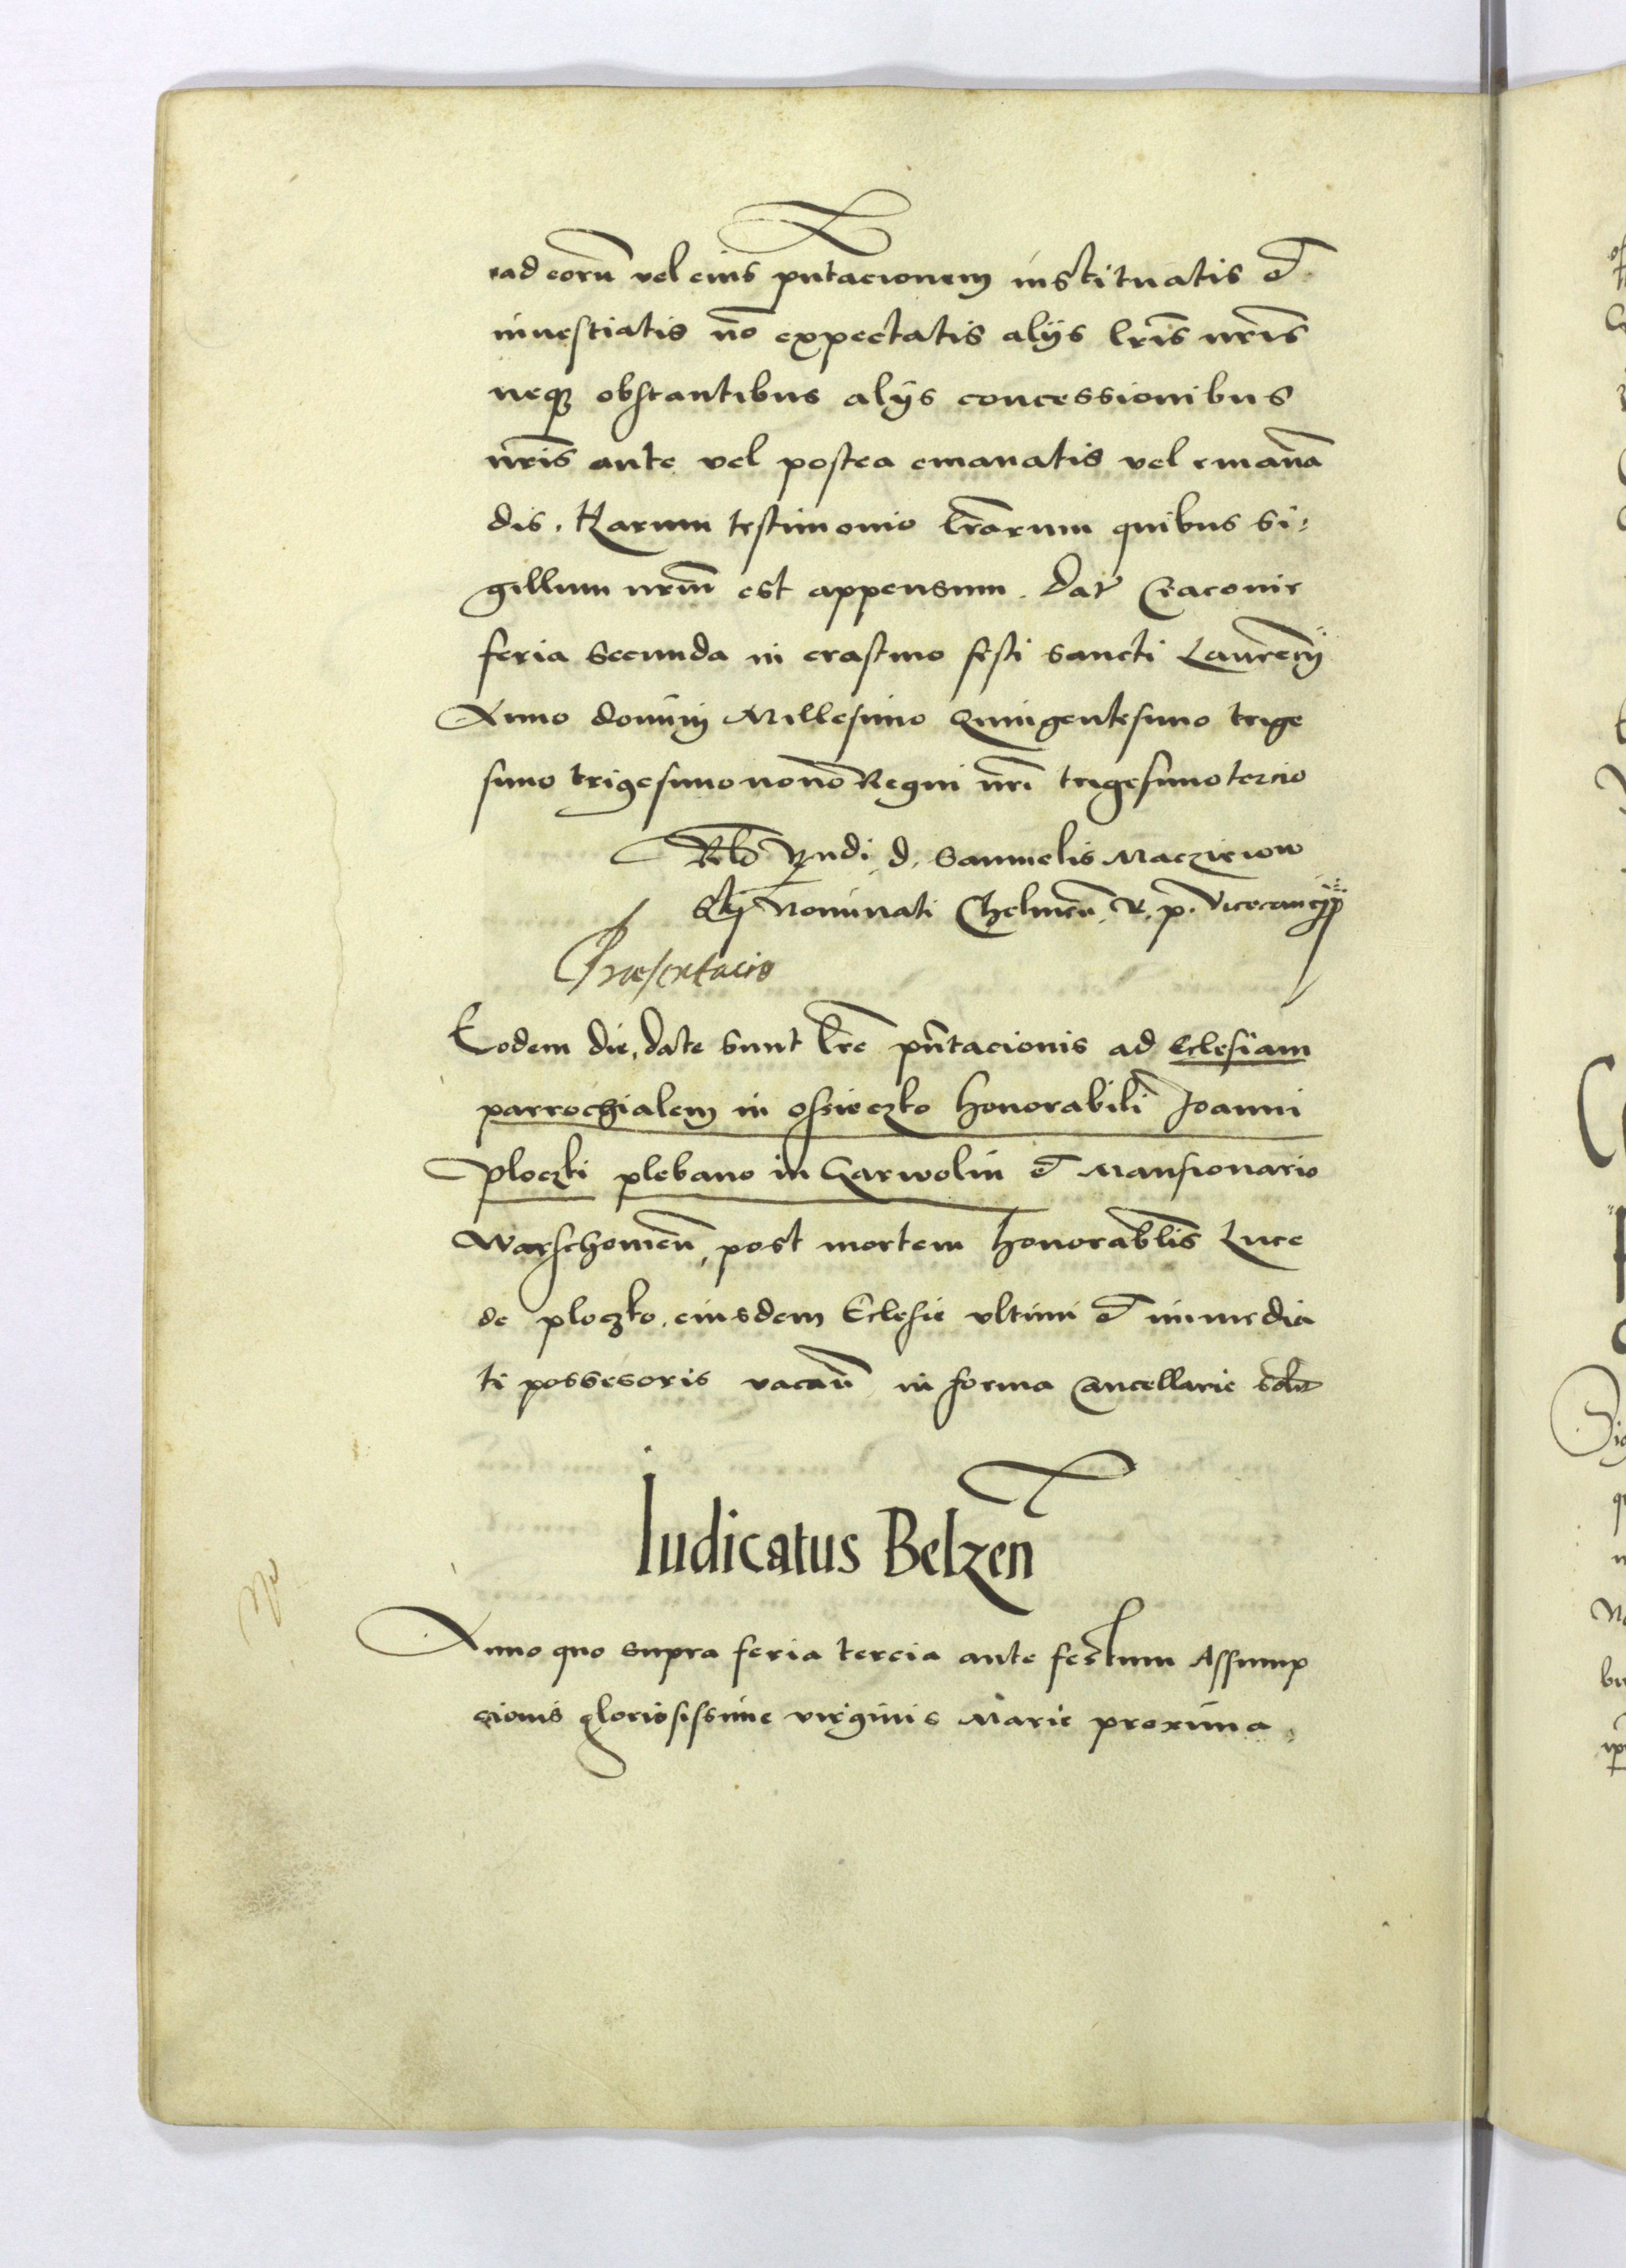 ad eorū vel eius pntacionem instituatis et
investiatis nō expectatis alijs lrīs nrīs
neqz obstantibus alijs concessionibus
nrīs ante vel postea emanatis vel emanā
dis. Harum testimonio lrārum quibus si:
gillum nrūm est appensum. Dat Cracovie
feria secunda in crastino festi sancti Laurencij
Anno domini Millesimo Quingentesimo trige
simo trigesimo nono Regni nrī trigesimotercio
Rlo Rndi d. Samuelis Maczieiow
skij Nominati Chelmeñ. R. p. Vicecancij
Præsentacio
Eodem die, date sunt lrē pñtacionis ad Eclesiam
parrochialem in ossieczko honorabili Joanni
Ploczki plebano in Garwolin et Mansionario
Warschovieñ, post mortem honorablis Luce
de ploczko, eiusdem Eclesie ultimi et immedia
ti possesoris vacañ in forma Cancellarie
Iudicatus Belzen
Anno quo supra feria tercia ante festum Assump
cionis gloriosissime virginis Marie proxima